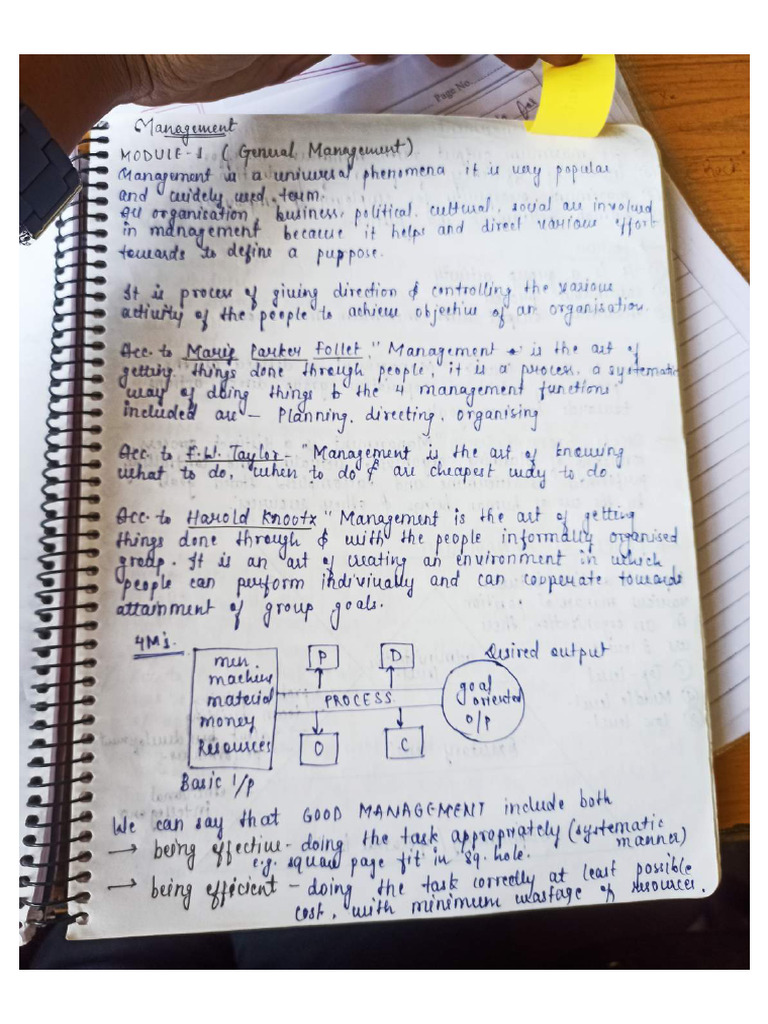 Page No.
Management
MODULE-1 ( General Management)
Management is a universal phenomena it is very popular
and widely used term.
All organisation business, political, cultural, social are involved
in management because it helps and direct various effort
towards to define a puppose.
It is process of giving direction & controlling the various
activity of the people to achieve objective of an organisation.
Acc. to Marie Parker Follet, "Management is the art of
getting things done through people, it is a process, a systematic
way of doing things to the 4 management functions"
included are – Planning, directing, organising
Acc to F.W. Taylor – "Management is the art of knowing
what to do, "when to do & are cheapest way to do.
Acc. to Harold Knootx "Management is the art of getting
things done through & with the people informally organised
group. It is an art of creating an environment in which
people can perform indiviually and can cooperate towards
attainment of group goals.
4M's.
men.
machine
material
money
Resources
Basic I/p
P
D
PROCESS
O
C
Desired output
goal
oriented
O/p
We can say that GOOD MANAGEMENT include both
→ being effective – doing the task appropriately (systematic
manner)
e.g. square page fit in "sq. hole.
→ being efficient – doing the task correctly at least possible
cost, with minimum wastage of resources.